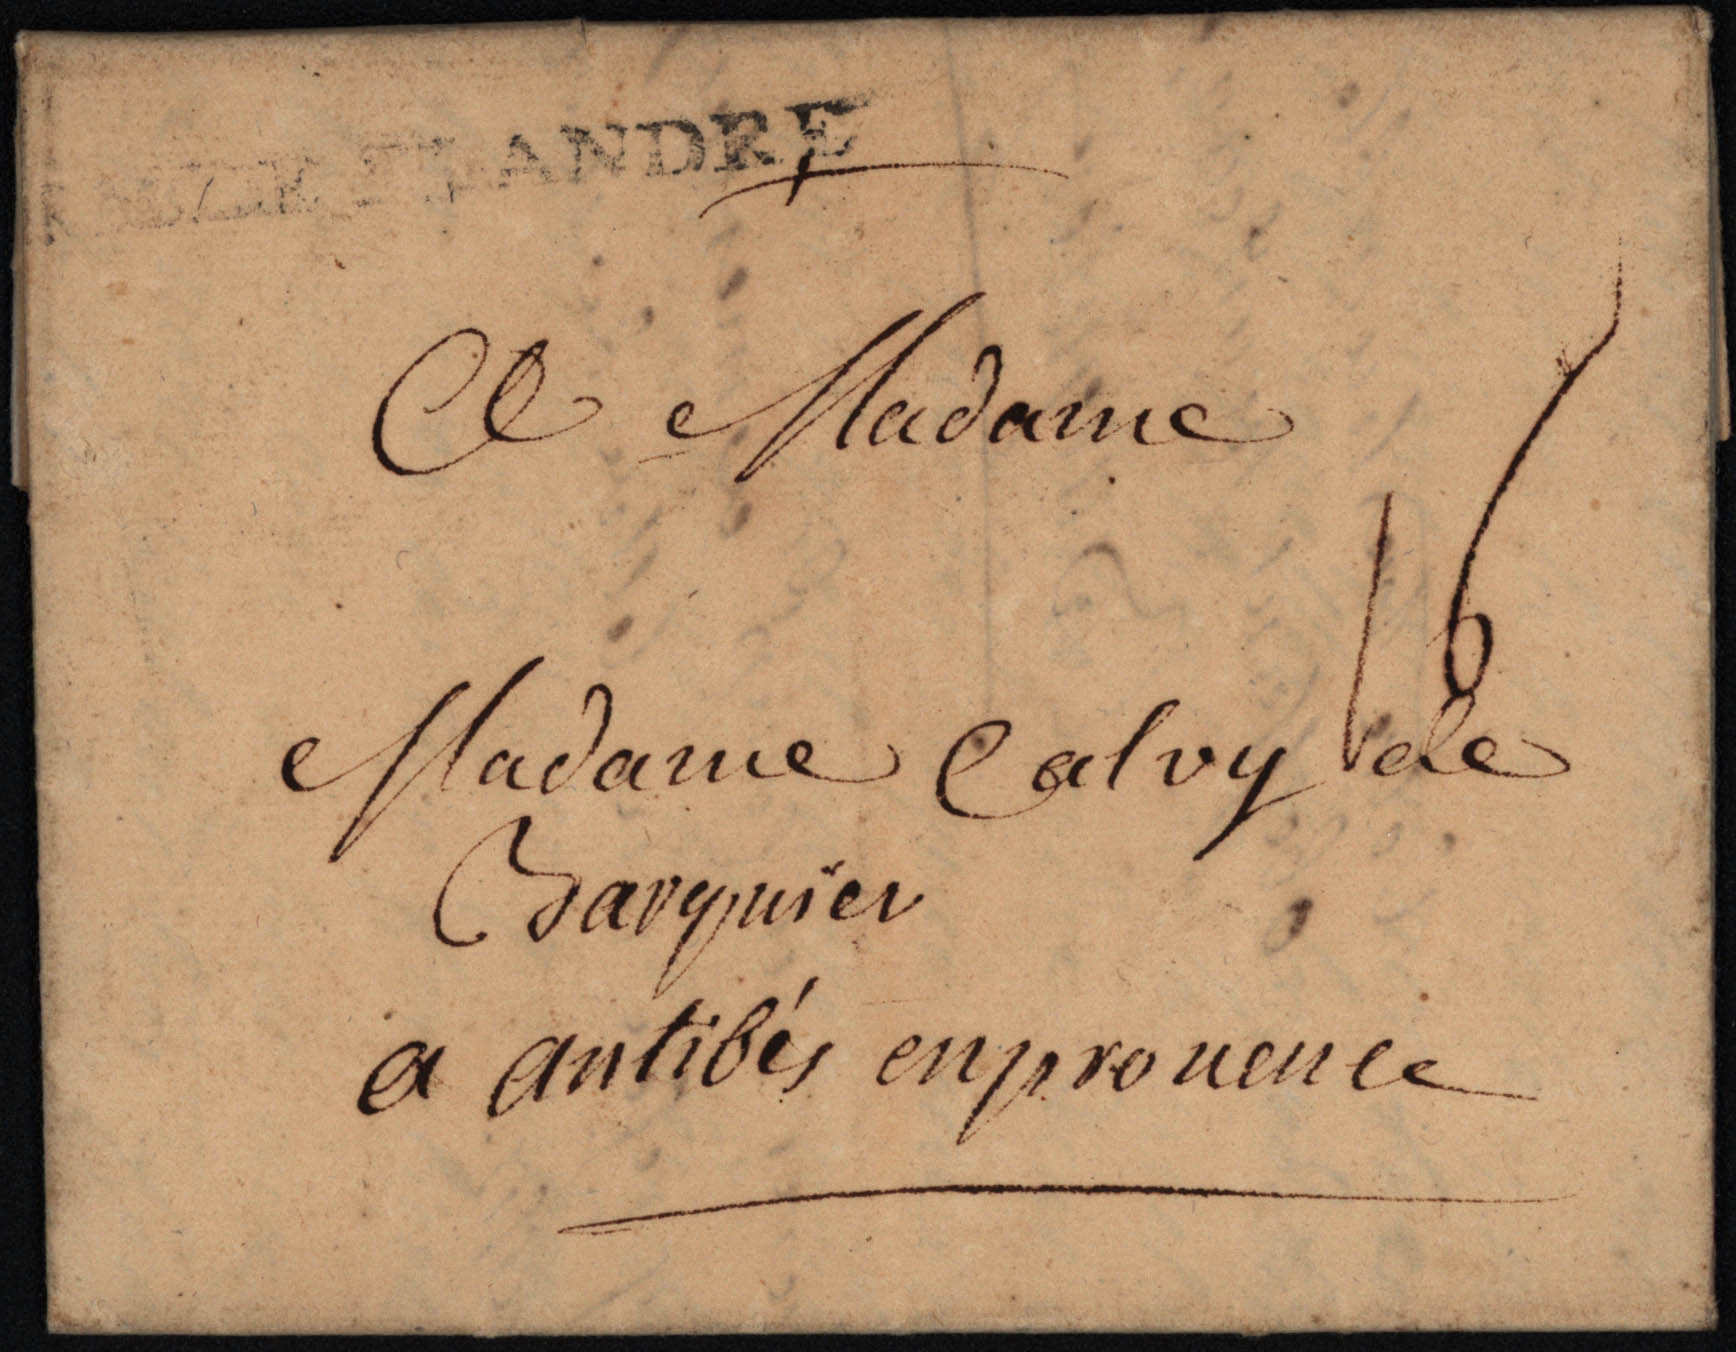 ANDRE
A Madame
16
Madame Calvy de
Barquier
a antibés en prouence